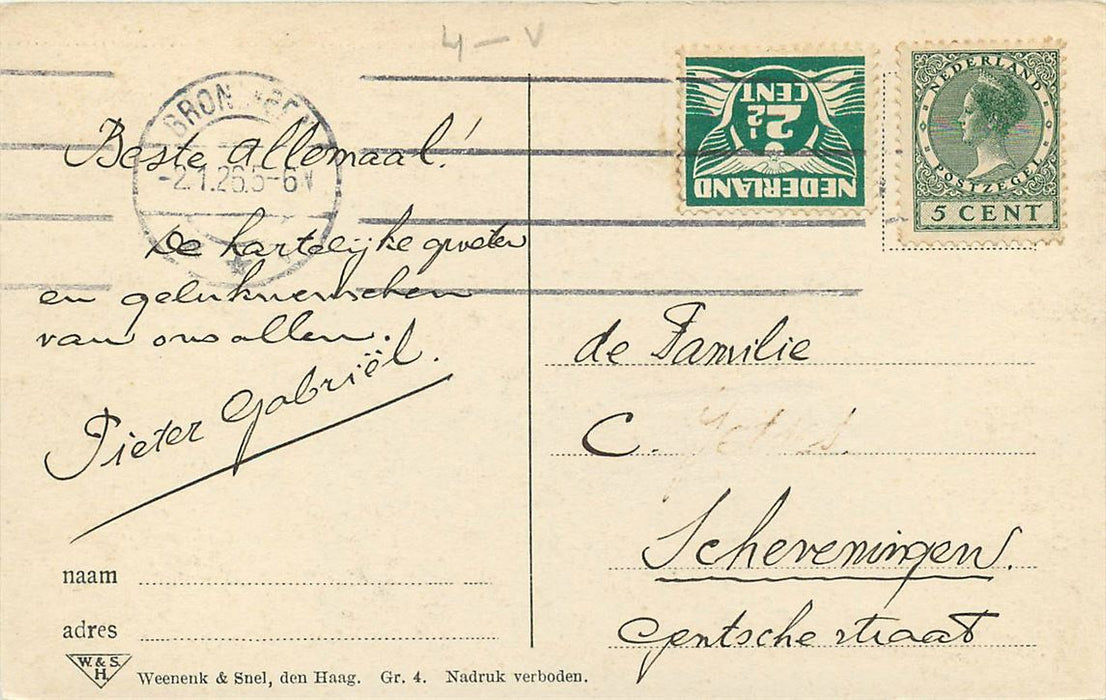 4 – V
GRONINGEN
-2.1.26.5-6V
2½
CENT
NEDERLAND
NEDERLAND
POSTZEGEL
5 CENT
Beste Allemaal!
De hartelijke groeten
en gelukwenschen
van ons allen.
Pieter Gabriël.
de Familie
C.
Scheveningen.
Gentsche straat
naam
adres
W. & S.
H.
Weenenk & Snel, den Haag. Gr. 4. Nadruk verboden.